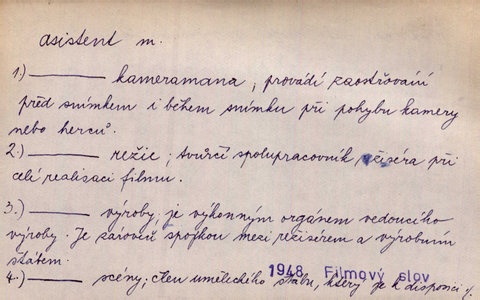 asistent m.
1.) ——— kameramana; provádí zaostřování
před snímkem i během snímku při pohybu kamery
nebo herců.
2.) ——— režie; tvůrčí spolupracovník režiséra při
celé realisaci filmu.
3.) ——— výroby, je výkonným orgánem vedoucího
výroby. Je zároveň spojkou mezi režisérem a výrobním
štábem.
1948, Filmový slov
4.) ——— scény; člen uměleckého štábu, který je k disposici